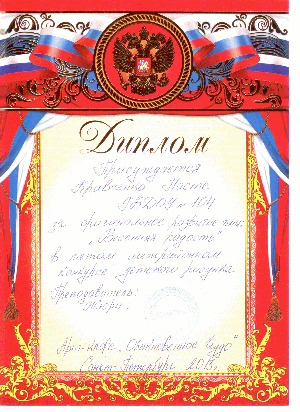 Диплом
Присуждается
Кравченко Насте
ГБДОУ № 104
за оригинальное развитие темы
"Весенняя радость"
в пятом метрайонном
конкурсе детского рисунка.
Преподаватель:
Жюри:
Арт-кафе "Обыкновенное Чудо"
Санкт-Петербург 2013г.